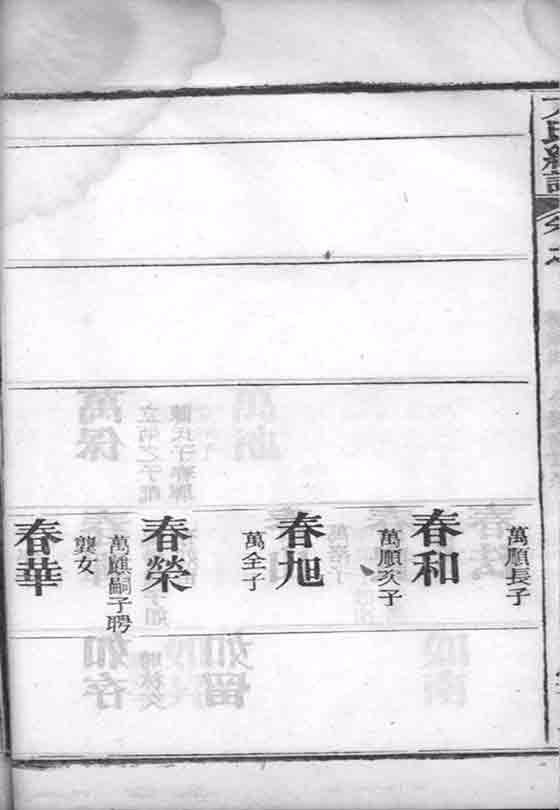 萬順長子
春和
萬順次子
春旭
萬全子
春榮
萬嗣子聘
龔女
春華